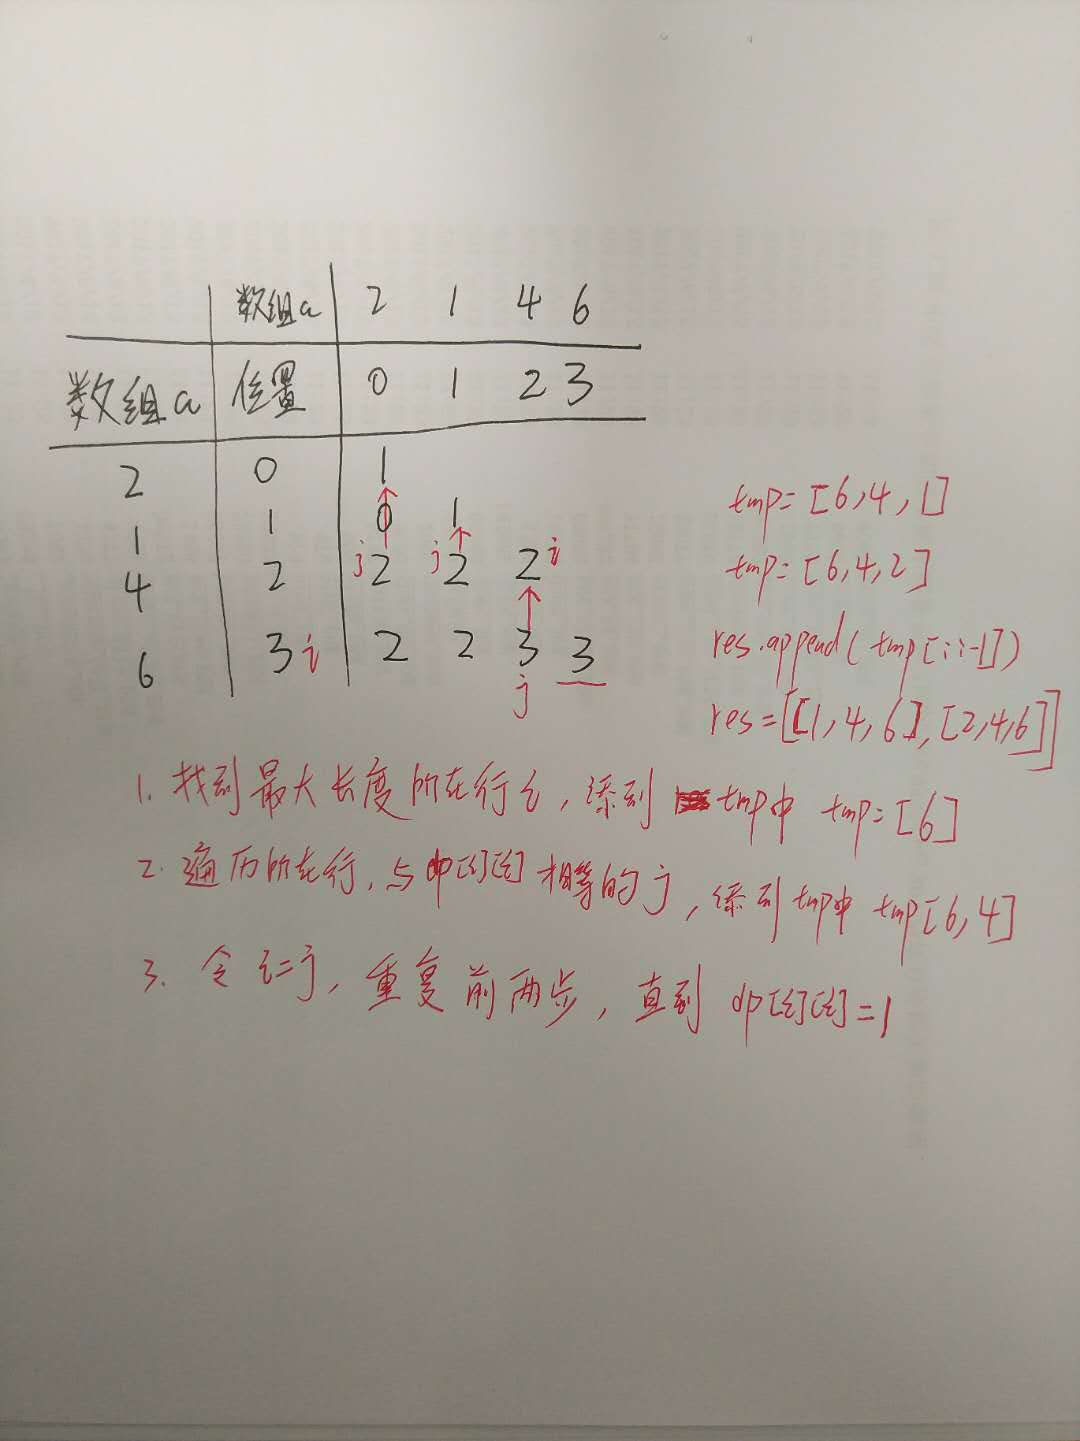 数组a 2 1 4 6
数组a 位置 0 1 2 3
2 0 1
1 1 0 1
4 2 j2 j2 2i
6 3i 2 2 3 3
j
tmp=[6,4,1]
tmp=[6,4,2]
res.append(tmp[::-1])
res=[[1,4,6],[2,4,6]]
1. 找到最大长度所在行i,添到 tmp中 tmp=[6]
2. 遍历所在行,与dp[i][i]相等的j,添到tmp中 tmp[6,4]
3. 令i=j,重复前两步,直到 dp[i][i]=1